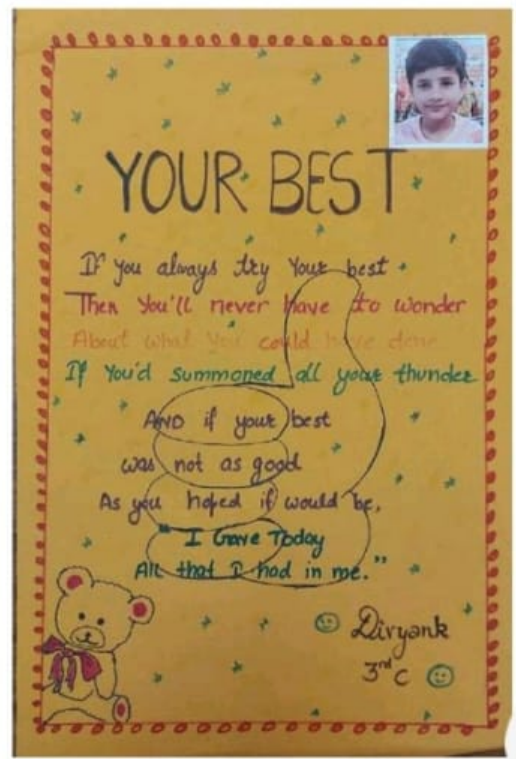 YOUR BEST
If you always try Your best
Then You'll never have to wonder
About what You could have done
If You'd summoned all your thunder
AND if your best
was not as good
As you hoped if would be,
"I Gave Today
All that I had in me."
Divyank
3rd C